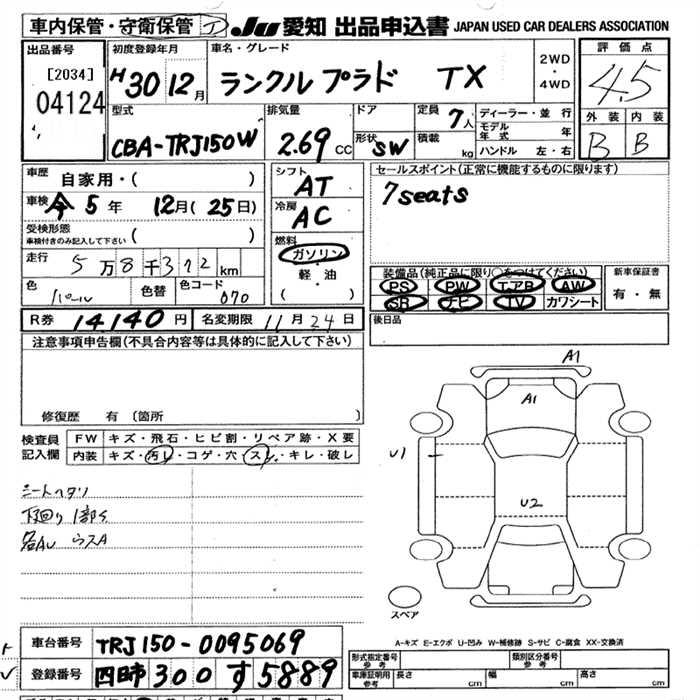 車内保管・守衛保管 ア JU 愛知 出品申込書 JAPAN USED CAR DEALERS ASSOCIATION
出品番号
[2034]
04124
初度登録年月
H30 12月
車名・グレード
ランクル プラド TX
2WD・4WD
評価点
4.5
外装 内装
B B
型式
CBA-TRJ150W
排気量
2.69 CC
ドア
形状 SW
定員 7人
積載 kg
ディーラー・並行
モデル年式 年
ハンドル 左・右
車歴 自家用・( )
車検 令5年 12月(25日)
受検形態
車検付きのみ記入して下さい ( )
走行 5万8千312km
色 パール 色替 色コード 070
シフト
AT
冷房
AC
燃料
ガソリン
軽・油
( )
セールスポイント(正常に機能するものに限ります)
7seats
装備品(純正品に限り○をつけてください)
PS PW エアB AW
SR ナビ TV カワシート
新車保証書
有・無
後日品
R券 14140円 名変期限 11月24日
注意事項申告欄(不具合内容等は具体的に記入して下さい)
修復歴 有 〔箇所 〕
検査員記入欄
FW キズ・飛石・ヒビ割・リペア跡・X要
内装 キズ・汚レ・コゲ・穴・スレ・キレ・破レ
シートヘタリ
下廻り1部S
各AU ウスA
A1
A1
U1
U2
スペア
A-キズ E-エクボ U-凹み W-補修跡 S-サビ C-腐食 XX-交換済
車台番号 TRJ150-0095069
登録番号 300 す 5889
形式指定番号 参考
類別区分番号 参考
車庫証明用 参考 長さ cm 幅 cm 高さ cm